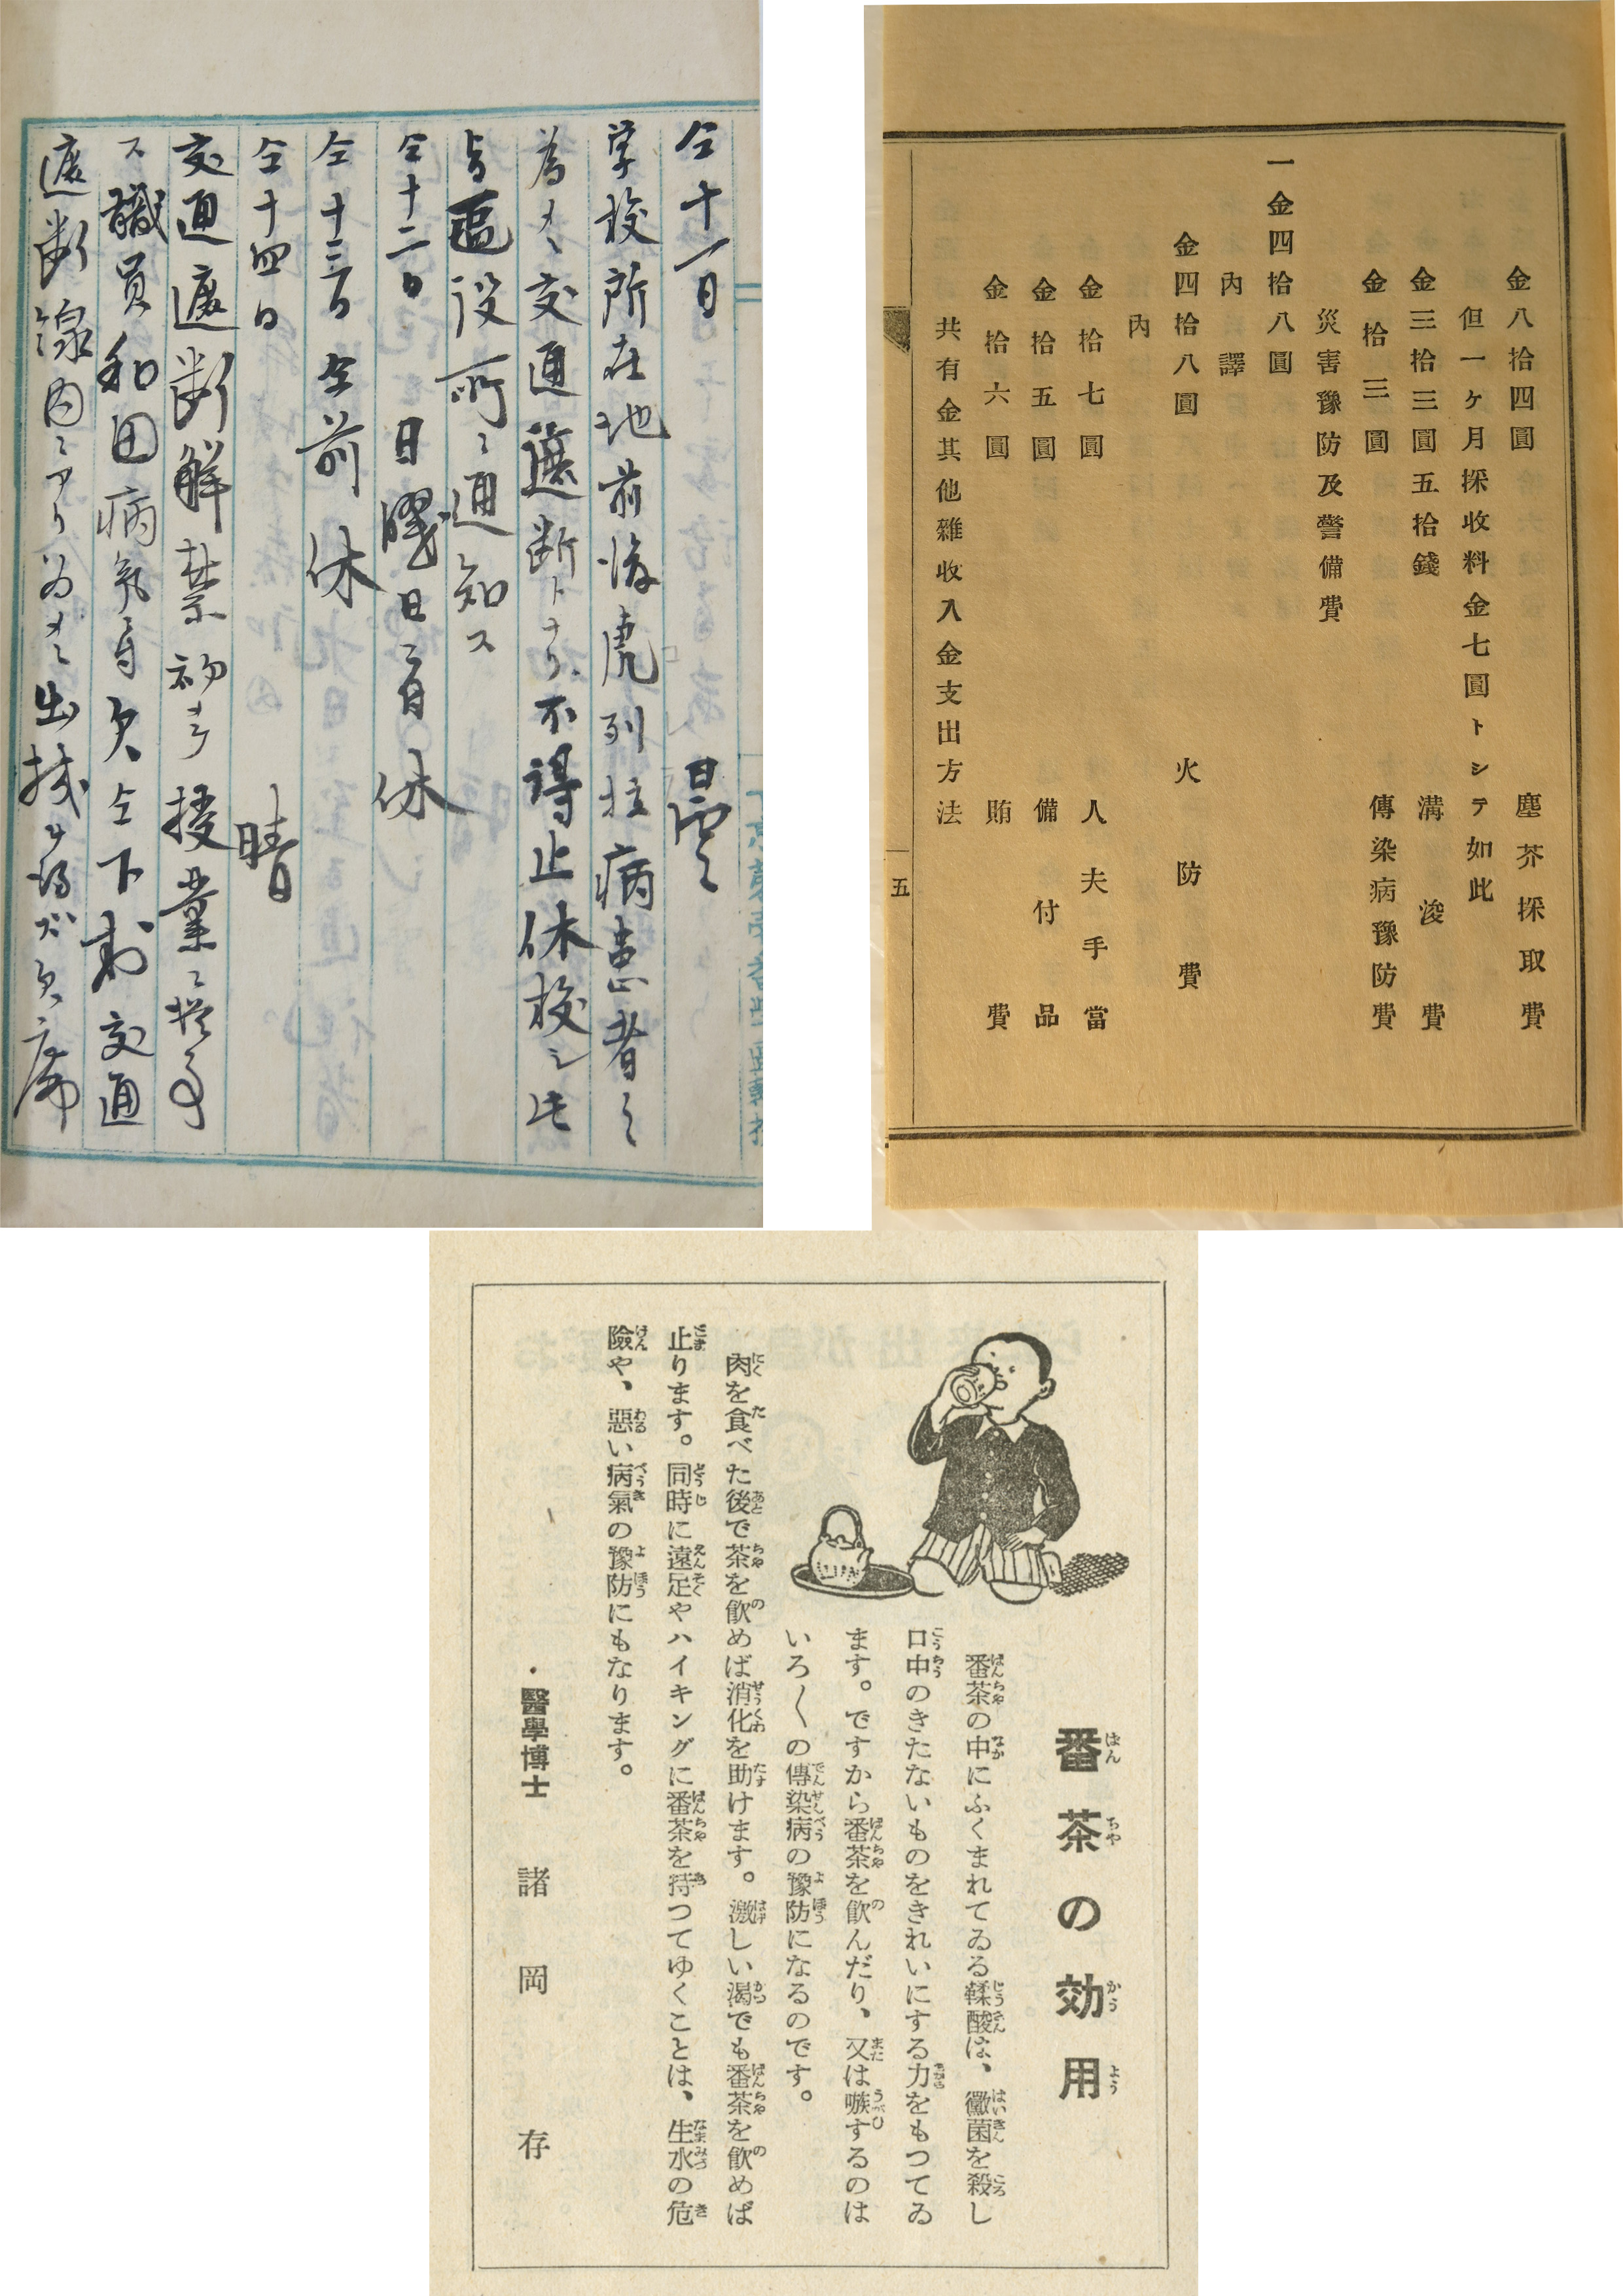 仝十一日 曇
学校所在地前後虎列拉病患者ノ
為メ交通遮断トナリ不得止休校シ此
旨區役所ニ通知ス
仝十二日 日曜日ニ付休
仝十三日 仝前休
仝十四日 晴
交通遮断解禁初テ授業ニ従事
ス職員和田病気ニ付欠仝下村交通
遮断線内ニアリ為メニ出校ヲ得ズ欠席
金八拾四圓 塵芥採取費
但一ケ月採收料金七圓トシテ如此
金三拾三圓五拾錢 溝浚費
金拾三圓 傳染病豫防費
災害豫防及警備費
一金四拾八圓
內譯
金四拾八圓 火防費
內
金拾七圓 人夫手當
金拾五圓 備付品
金拾六圓 賄費
共有金其他雜收入金支出方法
五
番茶の効用
番茶の中にふくまれてゐる鞣酸は、黴菌を殺し
口中のきたないものをきれいにする力をもつてゐ
ます。ですから番茶を飮んだり、又は嗽するのは
いろ〱の傳染病の豫防になるのです。
肉を食べた後で茶を飮めば消化を助けます。激しい渴でも番茶を飮めば
止ります。同時に遠足やハイキングに番茶を持つてゆくことは、生水の危
險や、惡い病氣の豫防にもなります。
・醫學博士 諸岡存